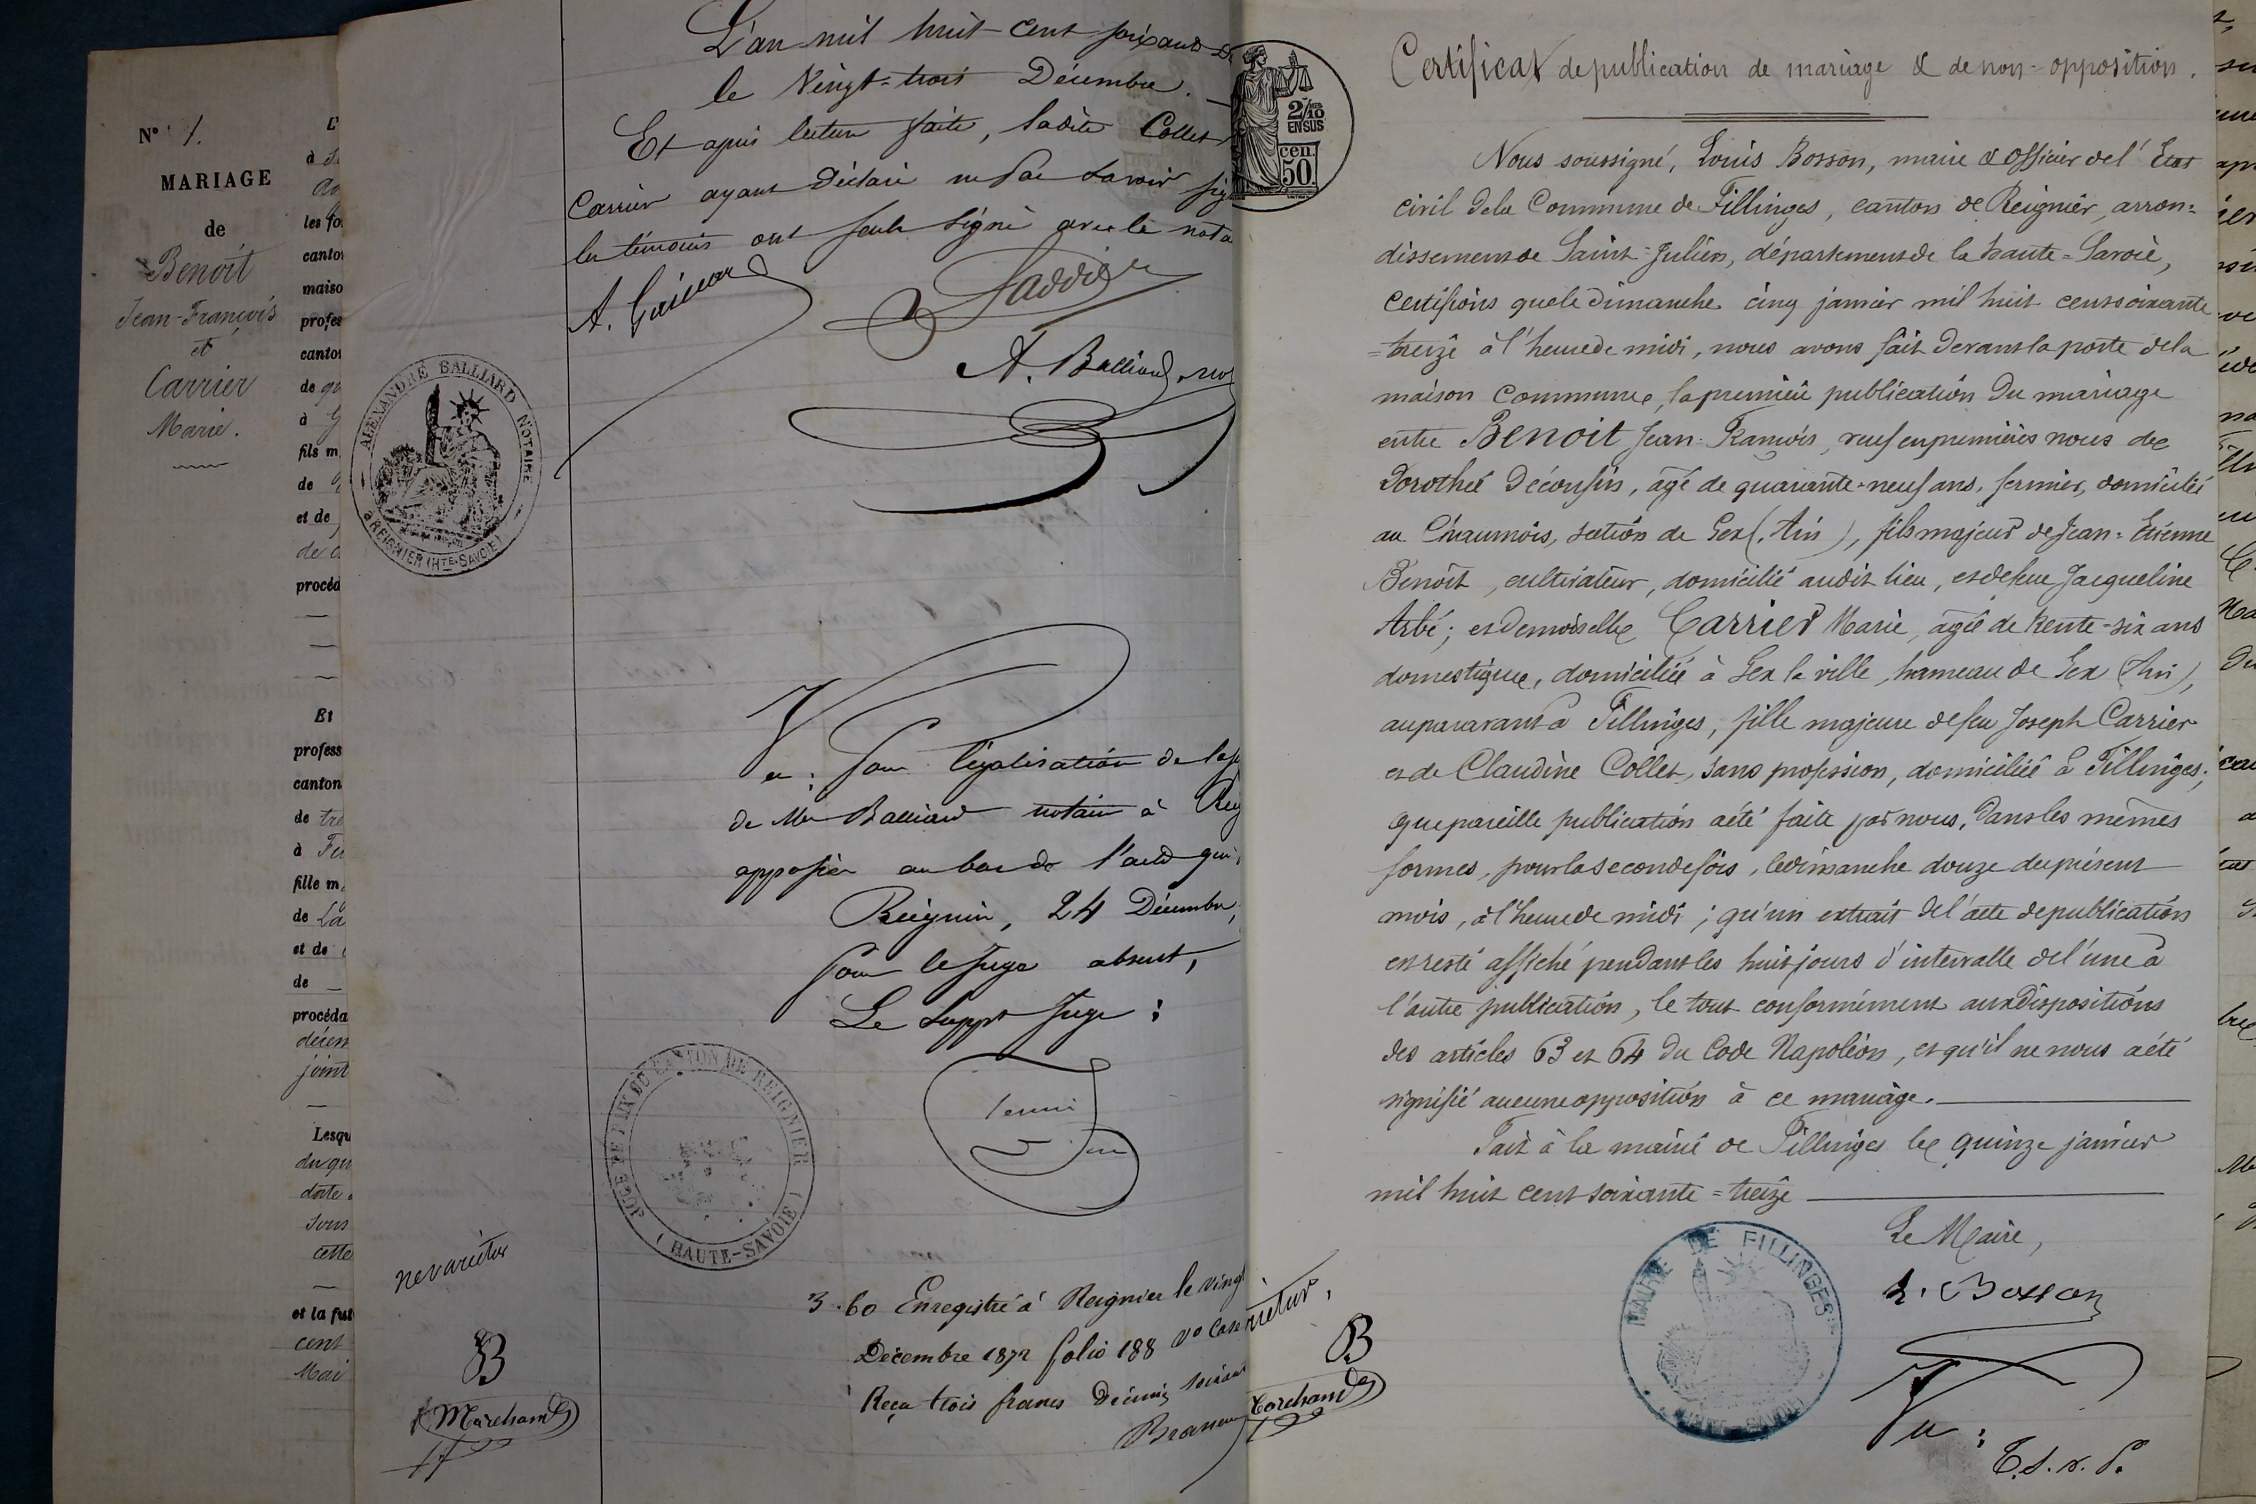 N° 1.
MARIAGE
de
Benoît
Jean-François
et
Carrier
Marie.
L'
à
les fo
canto
maiso
profes
canto
de
à
fils m
de
et de
de
procéd
Et
profess
canton
de tre
à
fille m
de La
et de
de
procéda
décem
joint
Lesqu
du qu
date
sous
cette
et la fut
cent
Mai
L'an mil huit cent soixante
le Vingt-trois Décembre.
Et après lecture faite, ladite Collet
Carrier ayant déclaré ne pas savoir sig
les témoins ont seuls signé avec le nota
Saddier
A. Balliard, not
ALEXANDRE BALLIARD NOTAIRE
à REIGNIER (HTE-SAVOIE)
Vu pour légalisation de la si
de Me Balliard notaire à Reig
apposée au bas de l'acte qui
Reignier, 24 Décembre
Pour le Juge absent,
Le Suppt Juge :
JUGE DE PAIX DU CANTON DE REIGNIER
(HAUTE-SAVOIE)
ne varietur
B
Marchand
3.60 Enregistré à Reignier le vingt
Décembre 1872 folio 188 Vo Case
Reçu trois francs Décimes soixan
2/10
EN SUS
cen.
50
Certificat de publication de mariage & de non-opposition.
Nous soussigné, Louis Bosson, maire & officier de l'Etat
civil de la Commune de Fillinges, canton de Reignier, arron=
dissement de Saint-Julien, département de la haute-Savoie,
certifions que le dimanche cinq janvier mil huit cent soixante
=treize à l'heure de midi, nous avons fait devant la porte de la
maison commune, la première publication du mariage
entre Benoit Jean-François, veuf en premières noces de
Dorothée Déconfin, âgé de quarante-neuf ans, fermier, domicilié
au Chaumois, section de Gex (Ain), fils majeur de Jean-Etienne
Benoît, cultivateur, domicilié audit lieu, et de feue Jacqueline
Arbé; et demoiselle Carrier Marie, âgée de trente-six ans
domestique, domiciliée à Gex la ville, hameau de Gex (Ain),
auparavant à Fillinges, fille majeure de feu Joseph Carrier
et de Claudine Collet, sans profession, domiciliée à Fillinges;
que pareille publication a été faite par nous, dans les mêmes
formes, pour la seconde fois, le dimanche douze du présent
mois, à l'heure de midi; qu'un extrait de l'acte de publication
est resté affiché pendant les huit jours d'intervalle de l'une à
l'autre publication, le tout conformément aux dispositions
des articles 63 et 64 du Code Napoléon, et qu'il ne nous a été
signifié aucune opposition à ce mariage.
Fait à la mairie de Fillinges le quinze janvier
mil huit cent soixante=treize
Le Maire,
L. Bosson
MAIRIE DE FILLINGES
HAUTE-SAVOIE
rietur,
B
Vu :
T.S.V.P.